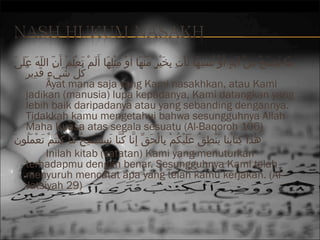 NASH HUKUM NASAKH
مَا نَنْسَخْ مِنْ آيَةٍ أَوْ نُنْسِهَا نَأْتِ بِخَيْرٍ مِنْهَا أَوْ مِثْلِهَا أَلَمْ تَعْلَمْ أَنَّ اللَّهَ عَلَى
كُلِّ شَيْءٍ قَدِيرٌ
Ayat mana saja yang Kami nasakhkan, atau Kami
jadikan (manusia) lupa kepadanya, Kami datangkan yang
lebih baik daripadanya atau yang sebanding dengannya.
Tidakkah kamu mengetahui bahwa sesungguhnya Allah
Maha Kuasa atas segala sesuatu (Al-Baqoroh 106)
هَذَا كِتَابُنَا يَنْطِقُ عَلَيْكُمْ بِالْحَقِّ إِنَّا كُنَّا نَسْتَنْسِخُ مَا كُنْتُمْ تَعْمَلُونَ
Inilah kitab (catatan) Kami yang menuturkan
terhadapmu dengan benar. Sesungguhnya Kami telah
menyuruh mencatat apa yang telah kamu kerjakan. (Al
Jatsiyah 29)